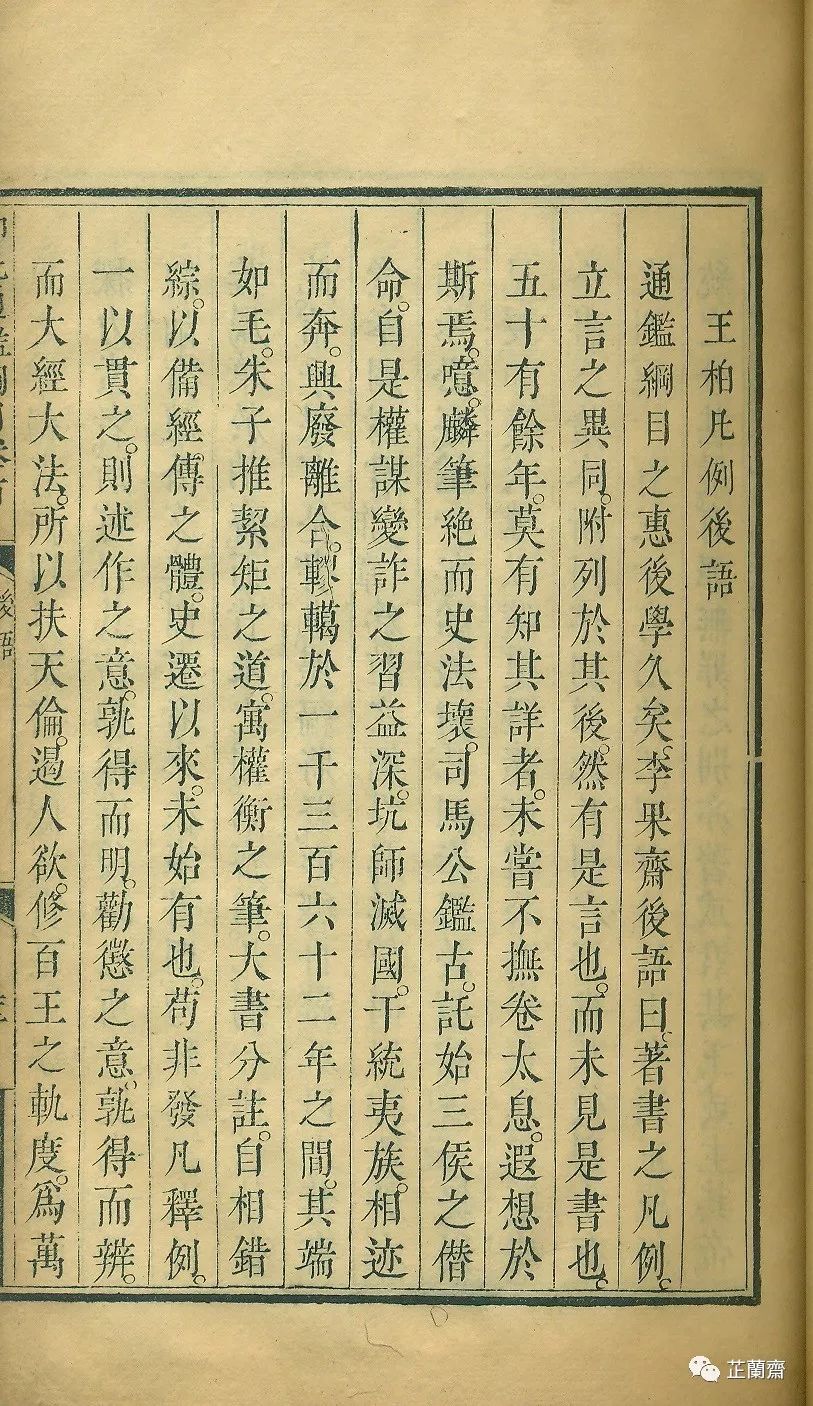 王柏凡例後語
通鑑綱目之惠後學久矣。李果齋後語曰。著書之凡例。
立言之異同。附列於其後。然有是言也。而未見是書也。
五十有餘年。莫有知其詳者。未嘗不撫卷太息。遐想於
斯焉。噫。麟筆絶而史法壞。司馬公鑑古。託始三侯之僭
命。自是權謀變詐之習益深。坑師滅國。干統夷族。相迹
而奔。興廢離合。轇轕於一千三百六十二年之間。其端
如毛。朱子推絜矩之道。寓權衡之筆。大書分註。自相錯
綜。以備經傳之體。史遷以來。未始有也。苟非發凡釋例。
一以貫之。則述作之意。孰得而明。勸懲之意。孰得而辨。
而大經大法。所以扶天倫。遏人欲。修百王之軌度。爲萬
後語
芷蘭齋